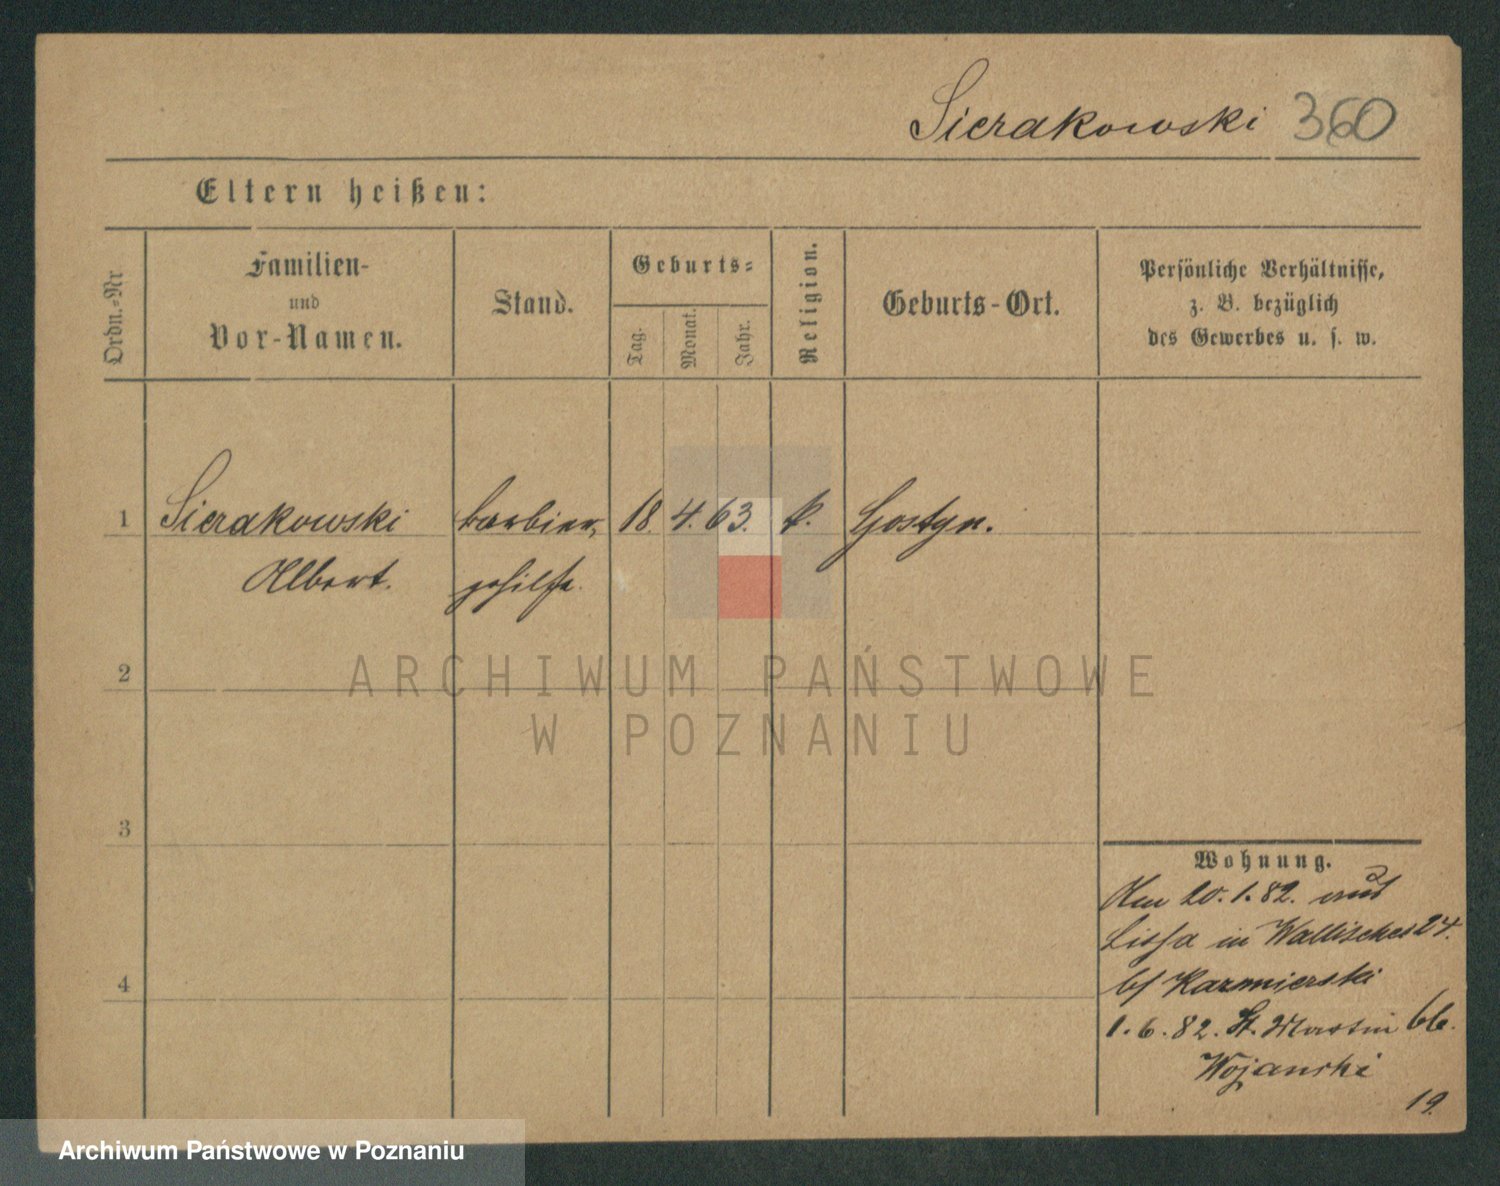 Sierakowski 360
Eltern heißen:
Ordn.-Nr
Familien-
und
Vor-Namen.
Stand.
Geburts-
Tag.
Monat.
Jahr.
Religion.
Geburts-Ort.
Persönliche Verhältnisse,
z. B. bezüglich
des Gewerbes u. s. w.
1 Sierakowski barbier 18. 4. 63. k. Gostyn.
Albert. gehilfe.
2
ARCHIWUM PAŃSTWOWE
W POZNANIU
3
4
Wohnung.
20. 1. 82. aus
Lissa in Wallischei 24.
b/ Kazmierski
1. 6. 82. St. Martin 66.
Wojanski
19.
Archiwum Państwowe w Poznaniu